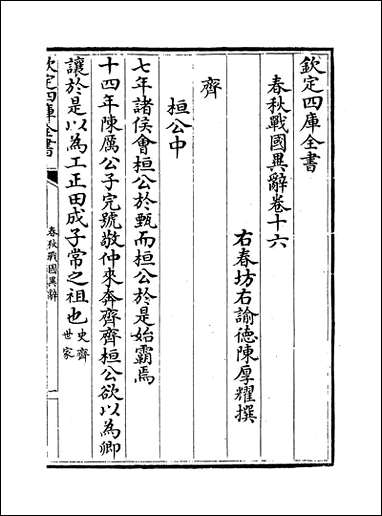 欽定四庫全書
春秋戰國異辭卷十六
右春坊右諭德陳厚耀撰
齊
桓公中
七年諸侯會桓公於甄而桓公於是始霸焉
十四年陳厲公子完號敬仲來奔齊齊桓公欲以為卿
讓於是以為工正田成子常之祖也史齊世家
欽定四庫全書
春秋戰國異辭
一